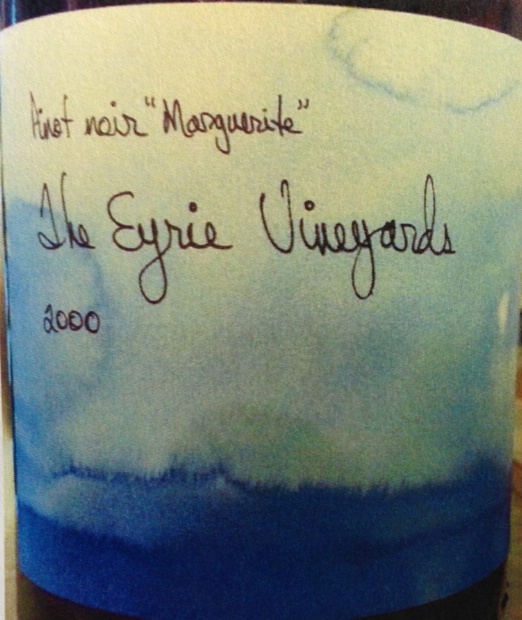 Pinot noir "Marguerite"
The Eyrie Vineyards
2000